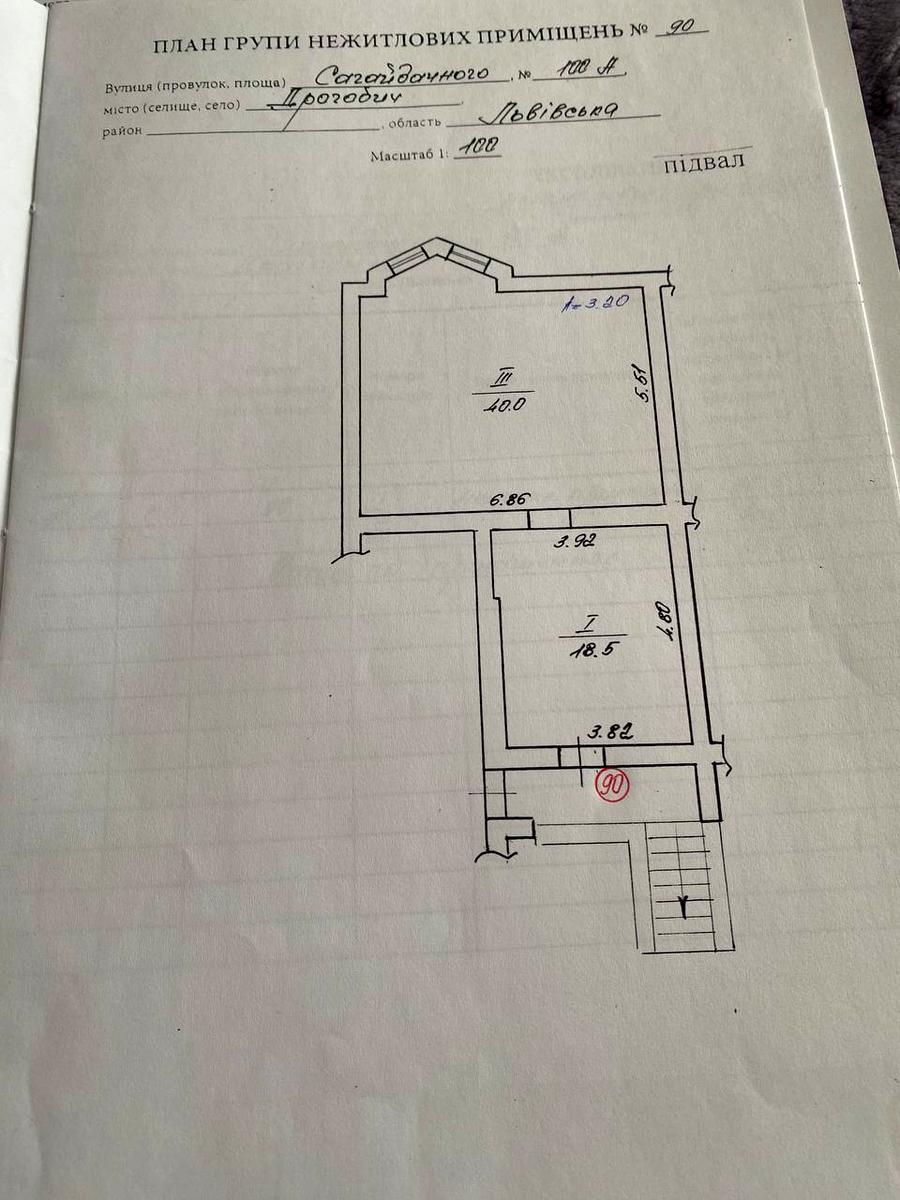 ПЛАН ГРУПИ НЕЖИТЛОВИХ ПРИМІЩЕНЬ № 90
Вулиця (провулок, площа) Сагайдачного, № 100 А,
місто (селище, село) Дрогобич,
район , область Львівська
Масштаб 1: 100
підвал
h=3.20
III
40.0
5.51
6.86
3.92
I
18.5
4.80
3.82
90